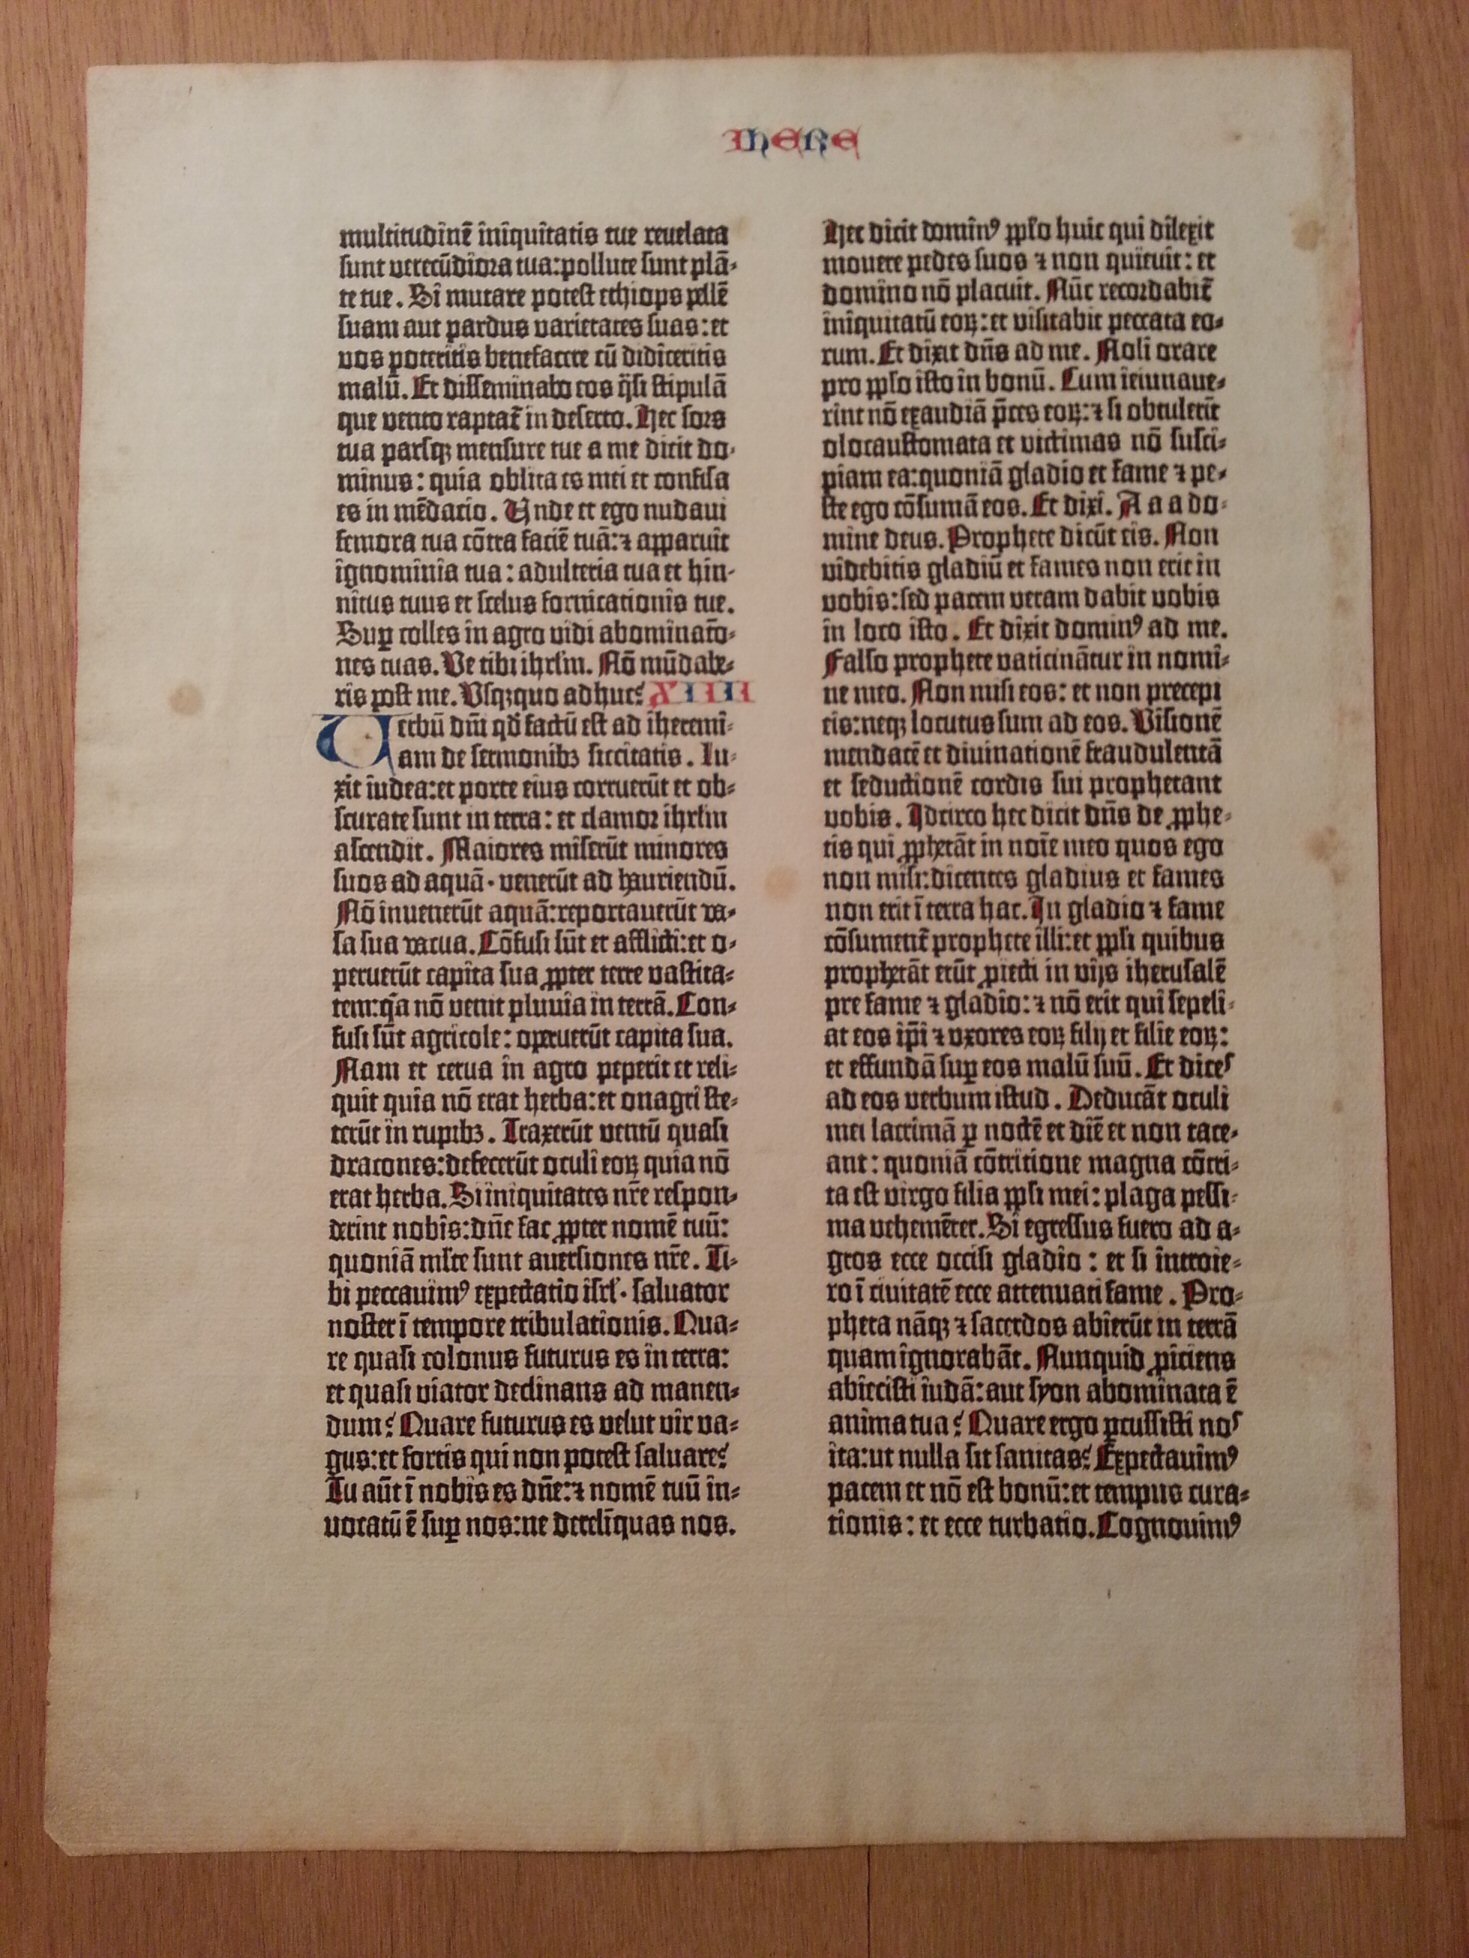 Ihere
multitudinē iniquitatis tue reuelata
sunt uerecūdiora tua:pollute sunt plā-
te tue. Si mutare potest ethiops pellē
suam aut pardus varietates suas:et
vos poteritis benefacere cū didiceritis
malū. Et disseminabo eos q̄si stipulā
que vento raptat̄ in deserto. Hec sors
tua parsqꝫ mensure tue a me dicit do-
minus: quia oblita es mei et confisa
es in mēdacio. Unde et ego nudaui
femora tua cōtra faciē tuā:⁊ apparuit
ignominia tua: adulteria tua et hin-
nitus tuus et scelus fornicationis tue.
Suꝑ colles in agro vidi abominatō-
nes tuas. Ve tibi ihrlm̄. Nō mūdabe-
ris post me. Vsqꝫquo adhuc? XIIII
Verbū dn̄i qd̄ factū est ad iheremi-
am de sermonibꝫ siccitatis. Lu-
xit iudea:et porte eius corruerūt et ob-
scurate sunt in terra: et clamor ihrlm̄
ascendit. Maiores miserūt minores
suos ad aquā· venerūt ad hauriendū.
Nō inuenerūt aquā:reportauerūt va-
sa sua vacua. Cōfusi sūt et afflicti:et o-
peruerūt capita sua ꝓpter terre vastita-
tem:q̄a nō venit pluuia in terrā. Con-
fusi sūt agricole: operuerūt capita sua.
Nam et cerua in agro peperit et reli-
quit quia nō erat herba:et onagri ste-
terūt in rupibꝫ. Traxerūt ventū quasi
dracones:defecerūt oculi eoꝝ quia nō
erat herba. Si iniquitates nr̄e respon-
derint nobis:dn̄e fac ꝓpter nomē tuū:
quoniā ml̄te sunt auersiones nr̄e. Ti-
bi peccauimꝰ expectatio isrl̄· saluator
noster ī tempore tribulationis. Qua-
re quasi colonus futurus es in terra:
et quasi viator declinans ad manen-
dum? Quare futurus es velut vir va-
gus:et fortis qui non potest saluare?
Tu aūt ī nobis es dn̄e:⁊ nomē tuū in-
uocatū ē suꝑ nos:ne derelīquas nos.
Hec dicit dominꝰ ppl̄o huic qui dilexit
mouere pedes suos ⁊ non quieuit: et
domino nō placuit. Nūc recordabit̄
iniquitatū eoꝝ:et visitabit peccata eo-
rum. Et dixit dn̄s ad me. Noli orare
pro pp̄lo isto in bonū. Cum ieiunaue-
rint nō exaudiā p̄ces eoꝝ:⁊ si obtulerīt
olocaustomata et victimas nō susci-
piam ea:quoniā gladio et fame ⁊ pe-
ste ego cōsumā eos. Et dixi. A a a do-
mine deus. Prophete dicūt eis. Non
videbitis gladiū et fames non erit in
vobis:sed pacem veram dabit vobis
in loco isto. Et dixit dominꝰ ad me.
Falso prophete vaticinātur in nomi-
ne meo. Non misi eos: et non precepi
eis:neqꝫ locutus sum ad eos. Visionē
mendacē et diuinationē fraudulentā
et seductionē cordis sui prophetant
vobis. Idcirco hec dicit dn̄s de ꝓphe-
tis qui ꝓphetāt in noīe meo quos ego
non misi:dicentes gladius et fames
non erit ī terra hac. In gladio ⁊ fame
cōsument̄ prophete illi:et pp̄li quibus
prophetāt erūt ꝓiecti in vijs iherusalē
pre fame ⁊ gladio: ⁊ nō erit qui sepeli-
at eos ip̄i ⁊ vxores eoꝝ filij et filie eoꝝ:
et effundā suꝑ eos malū suū. Et dices
ad eos verbum istud. Deducāt oculi
mei lacrimā ꝑ noctē et diē et non tace-
ant: quoniā cōtritione magna cōtri-
ta est virgo filia pp̄li mei: plaga pessi-
ma vehemēter. Si egressus fuero ad a-
gros ecce occisi gladio: et si introie-
ro ī ciuitatē ecce attenuati fame. Pro-
pheta nāqꝫ ⁊ sacerdos abierūt in terrā
quam ignorabāt. Nunquid ꝓiciens
abiecisti iudā:aut syon abominata ē
anima tua? Quare ergo ꝑcussisti nos
ita:ut nulla sit sanitas? Expectauimꝰ
pacem et nō est bonū:et tempus cura-
tionis: et ecce turbatio. Cognouimꝰ